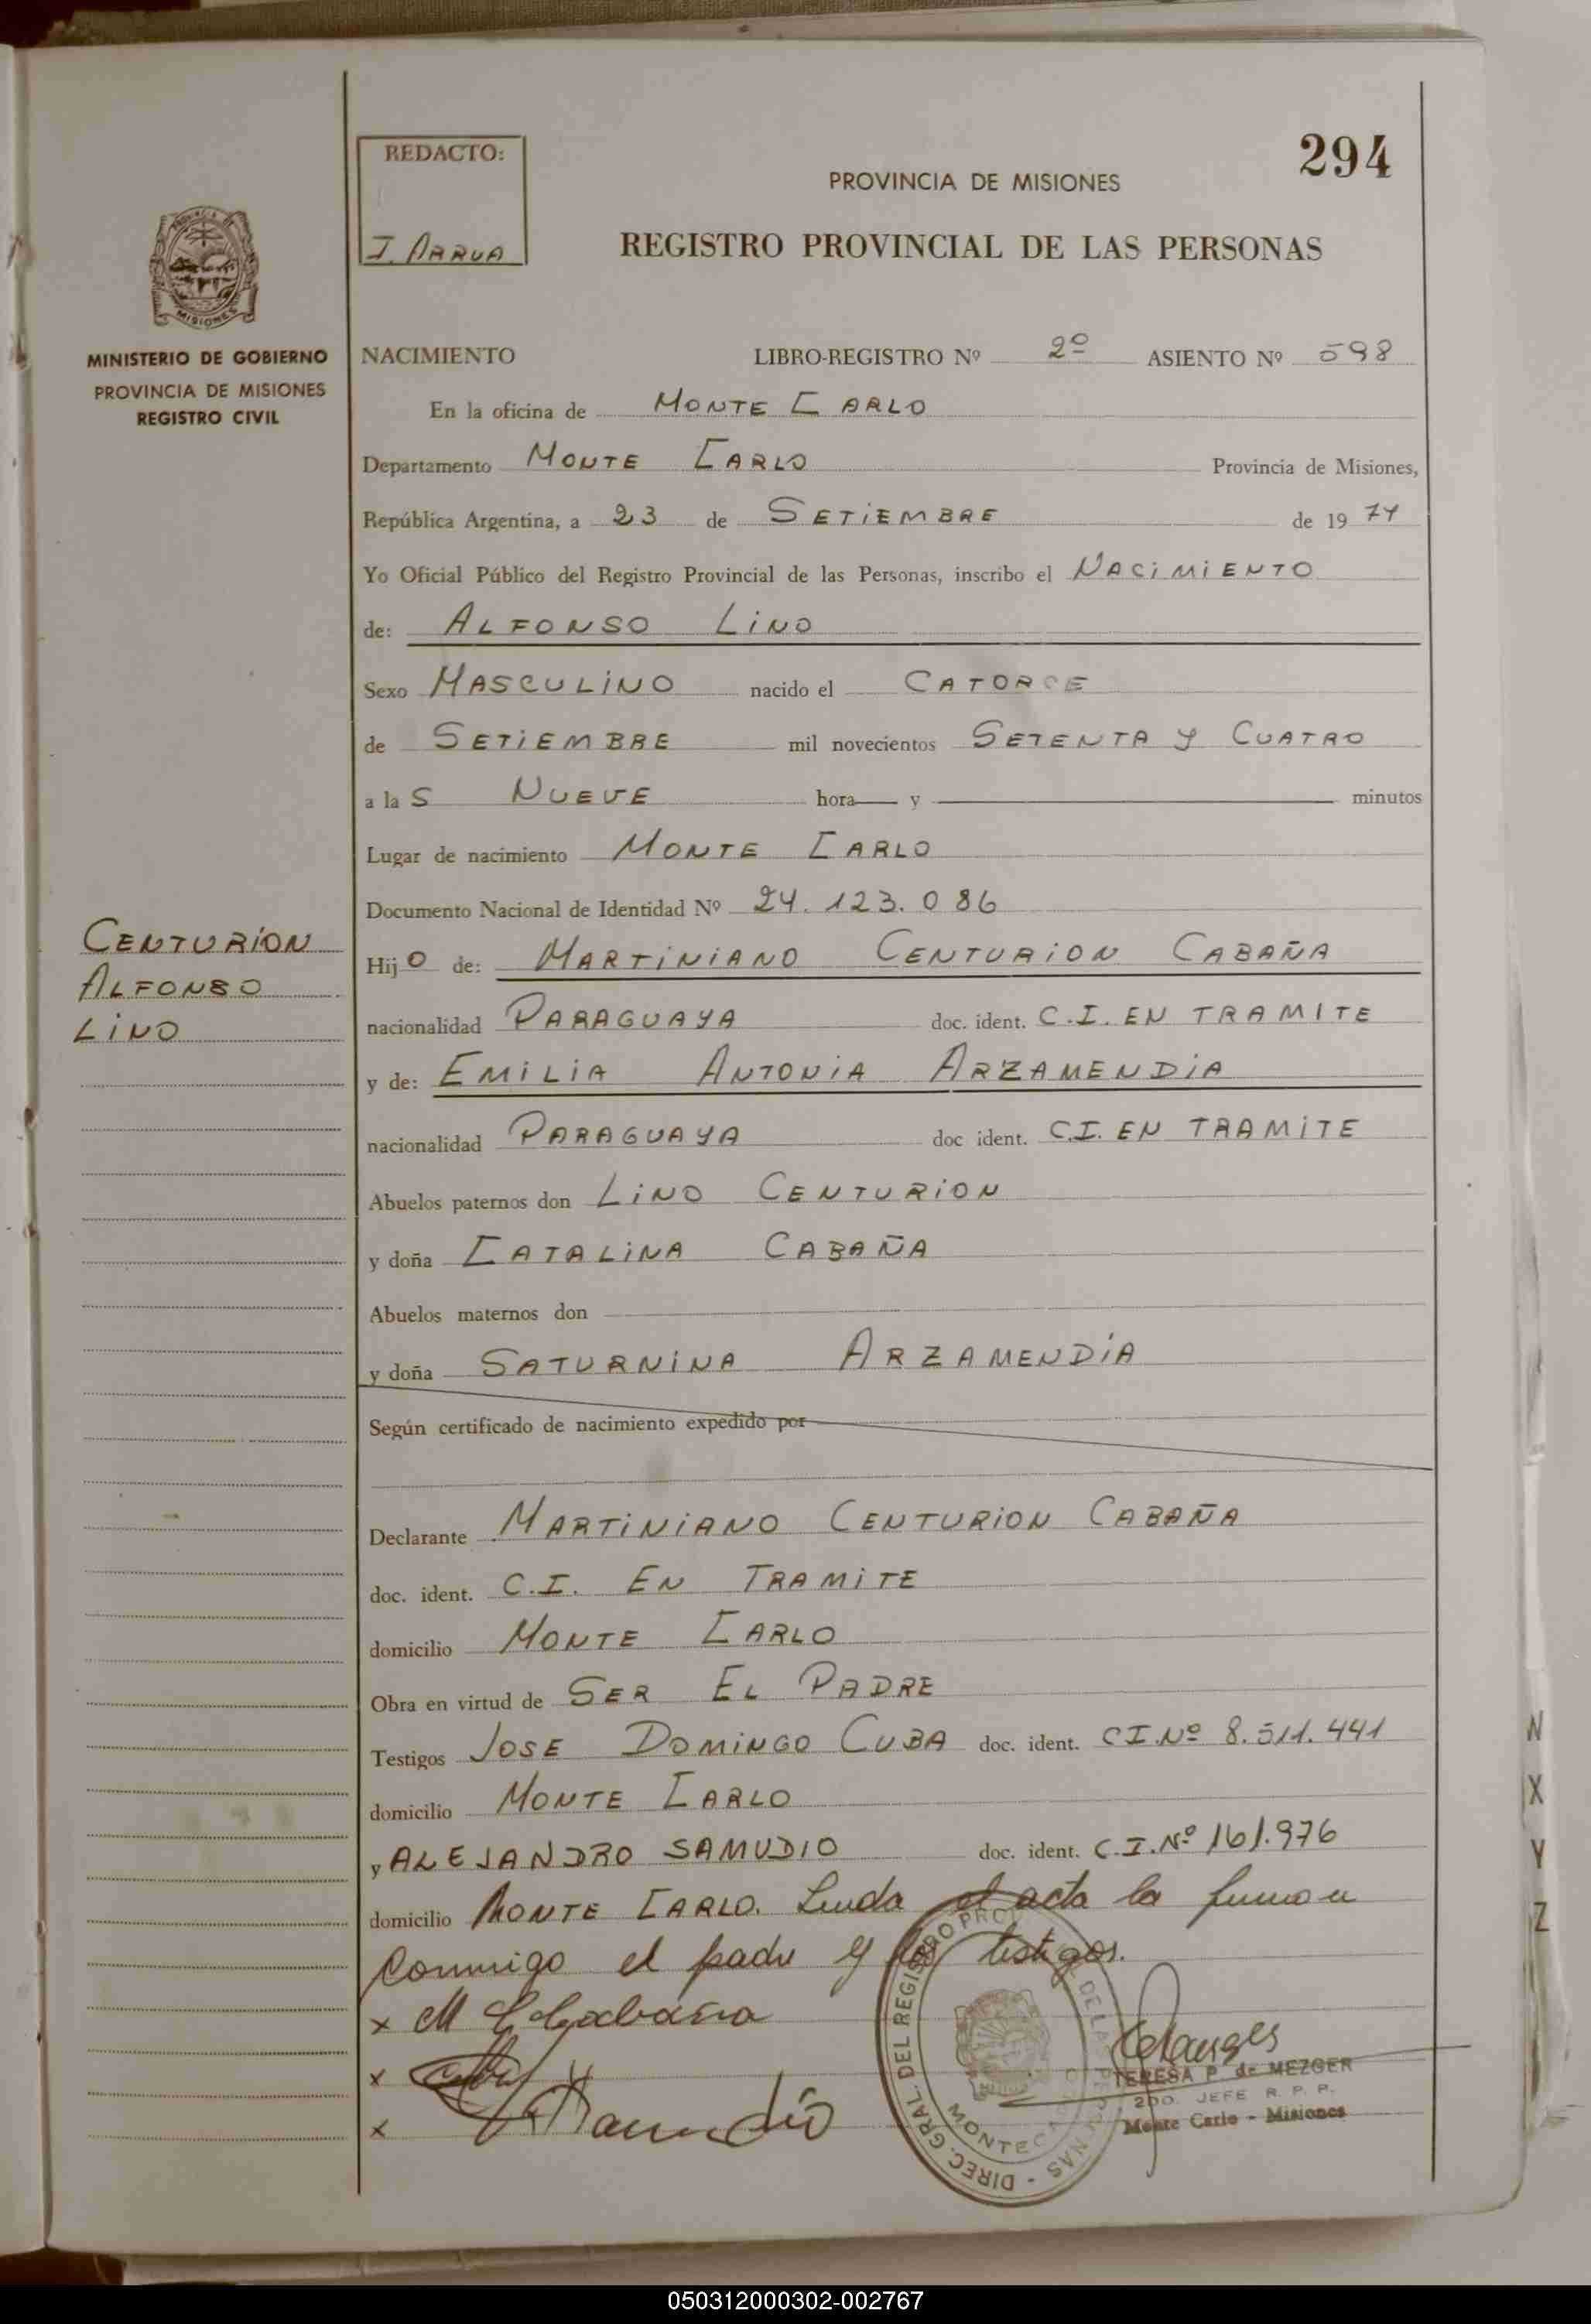 REDACTO:
J. ARRUA
294
PROVINCIA DE MISIONES
REGISTRO PROVINCIAL DE LAS PERSONAS
MISIONES
MINISTERIO DE GOBIERNO
PROVINCIA DE MISIONES
REGISTRO CIVIL
NACIMIENTO LIBRO-REGISTRO Nº 2º ASIENTO Nº 598
En la oficina de MONTE CARLO
Departamento MONTE CARLO Provincia de Misiones,
República Argentina, a 23 de SETIEMBRE de 19 74
Yo Oficial Público del Registro Provincial de las Personas, inscribo el NACIMIENTO
de: ALFONSO LINO
Sexo MASCULINO nacido el CATORCE
de SETIEMBRE mil novecientos SETENTA Y CUATRO
a la S NUEVE hora y minutos
Lugar de nacimiento MONTE CARLO
Documento Nacional de Identidad Nº 24.123.086
CENTURIÓN
ALFONSO
LINO
Hij O de: MARTINIANO CENTURION CABAÑA
nacionalidad PARAGUAYA doc. ident. C.I. EN TRAMITE
y de: EMILIA ANTONIA ARZAMENDIA
nacionalidad PARAGUAYA doc ident. C.I. EN TRAMITE
Abuelos paternos don LINO CENTURION
y doña CATALINA CABAÑA
Abuelos maternos don
y doña SATURNINA ARZAMENDÍA
Según certificado de nacimiento expedido por
Declarante MARTINIANO CENTURION CABAÑA
doc. ident. C.I. EN TRAMITE
domicilio MONTE CARLO
Obra en virtud de SER EL PADRE
Testigos JOSE DOMINGO CUBA doc. ident. C I.Nº 8.511.441
domicilio MONTE CARLO
y ALEJANDRO SAMUDIO doc. ident. C.I.Nº 161.976
domicilio MONTE CARLO. Leida el acta la firman
conmigo el padre y los testigos.
x M C Cabaña
x Cuba
x Samudio
DIREC. GRAL. DEL REGISTRO PROV. DE LAS PERSONAS
MONTECARLO
TERESA P. de MEZGER
2DO. JEFE R. P. P.
Monte Carlo - Misiones
N
X
Y
Z
050312000302-002767